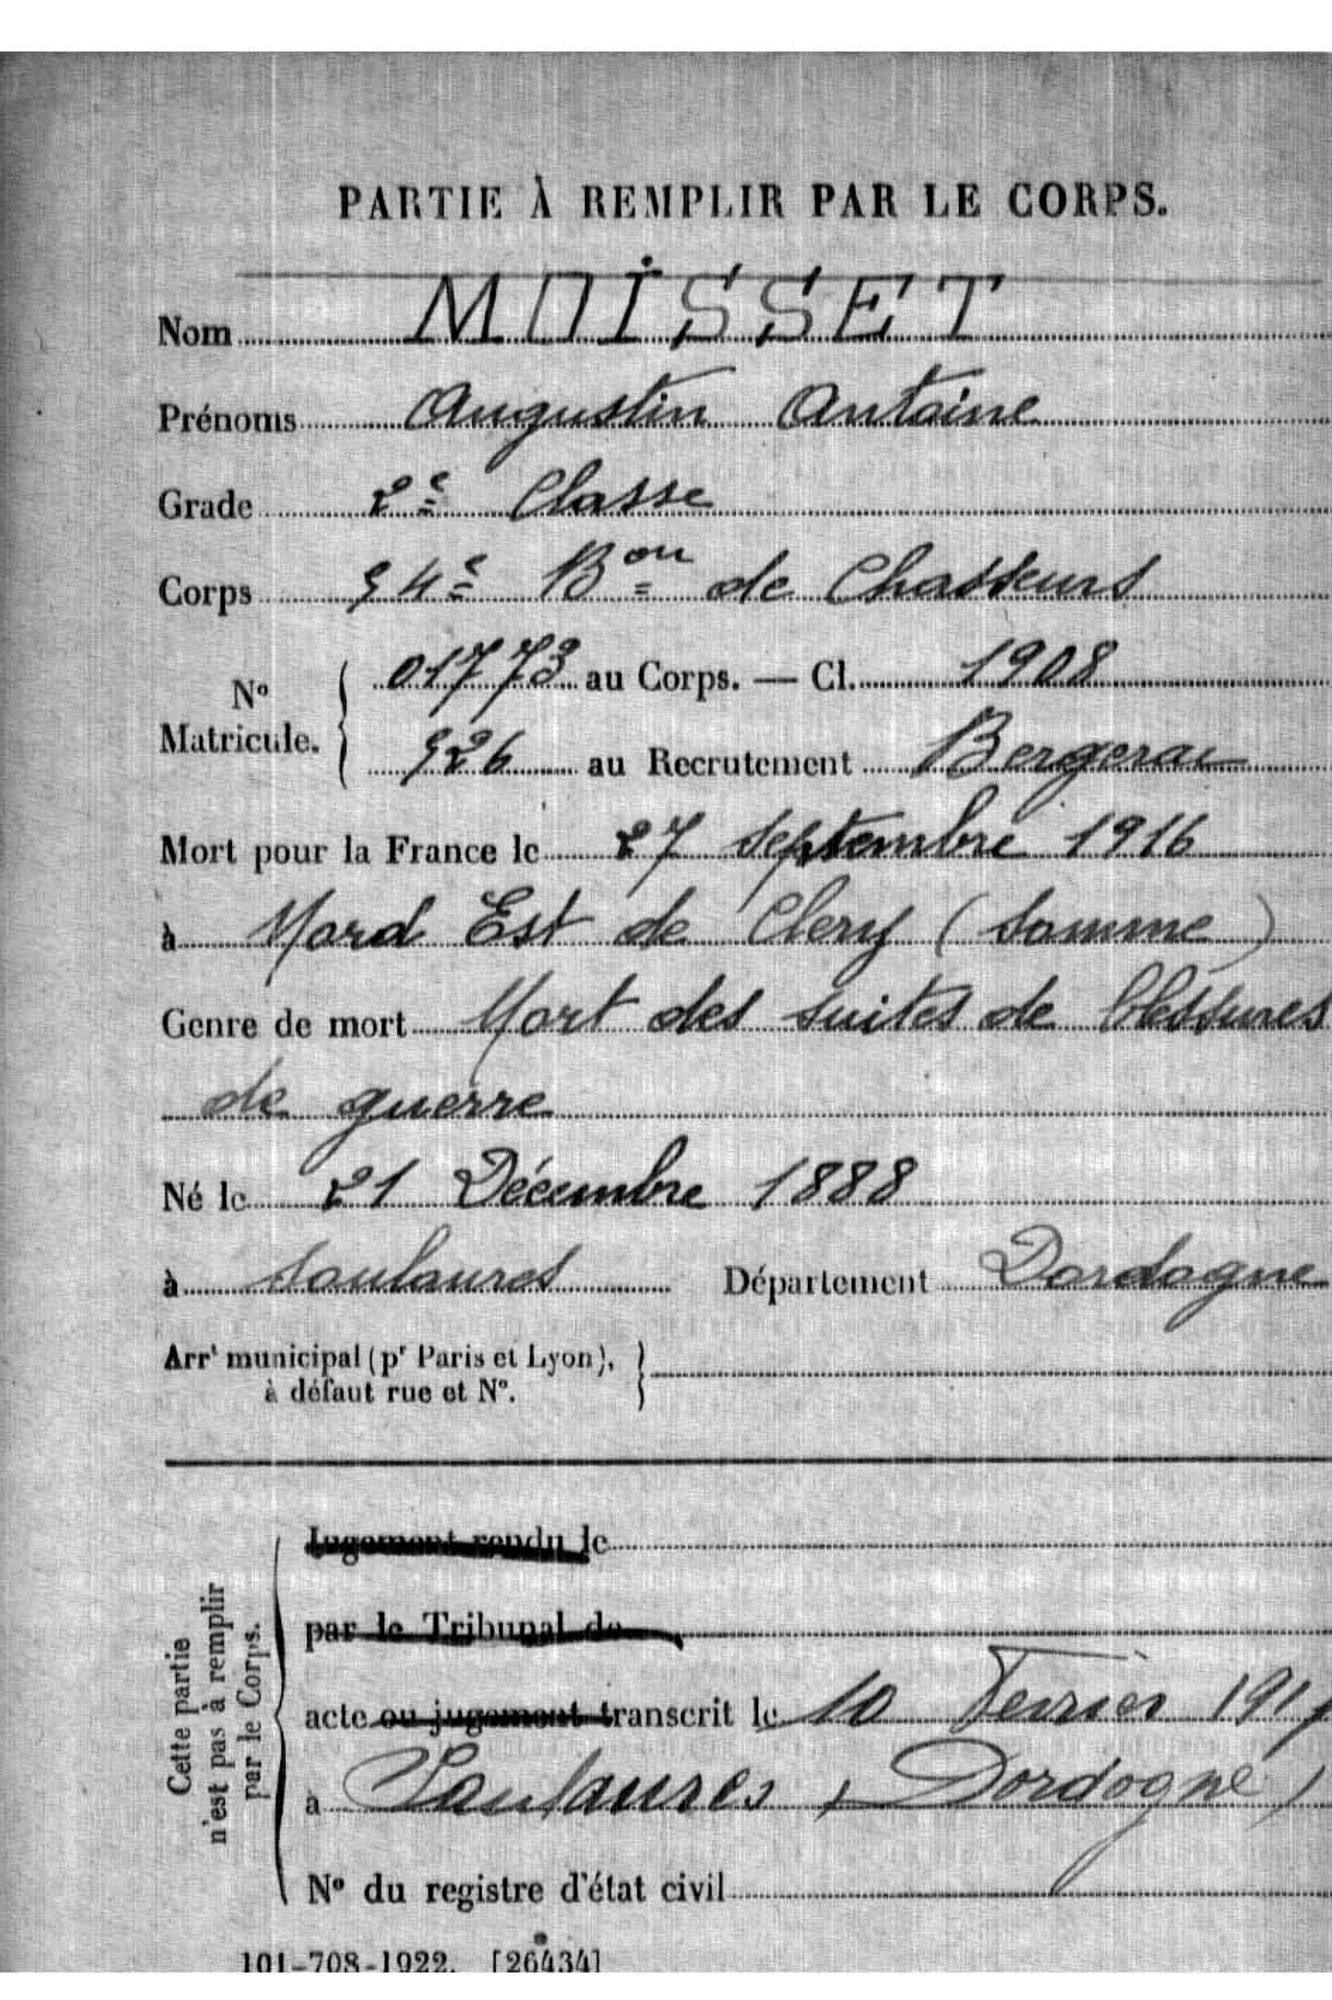 PARTIE À REMPLIR PAR LE CORPS.
Nom MOISSET
Prénoms Augustin Antoine
Grade 2e Classe
Corps 54e Bon de Chasseurs
No Matricule. { 01773 au Corps. — Cl. 1908
926 au Recrutement Bergerac
Mort pour la France le 27 Septembre 1916
à Nord Est de Clery (Somme)
Genre de mort Mort des suites de blessures
de guerre
Né le 21 Décembre 1888
à Saulaures Département Dordogne
Arrt municipal (pr Paris et Lyon), }
à défaut rue et N°.
Cette partie
n'est pas à remplir
par le Corps.
Jugement rendu le
par le Tribunal de
acte ou jugement transcrit le 10 Février 1917
à Saulaures (Dordogne)
N° du registre d'état civil
101-708-1922. [26434]